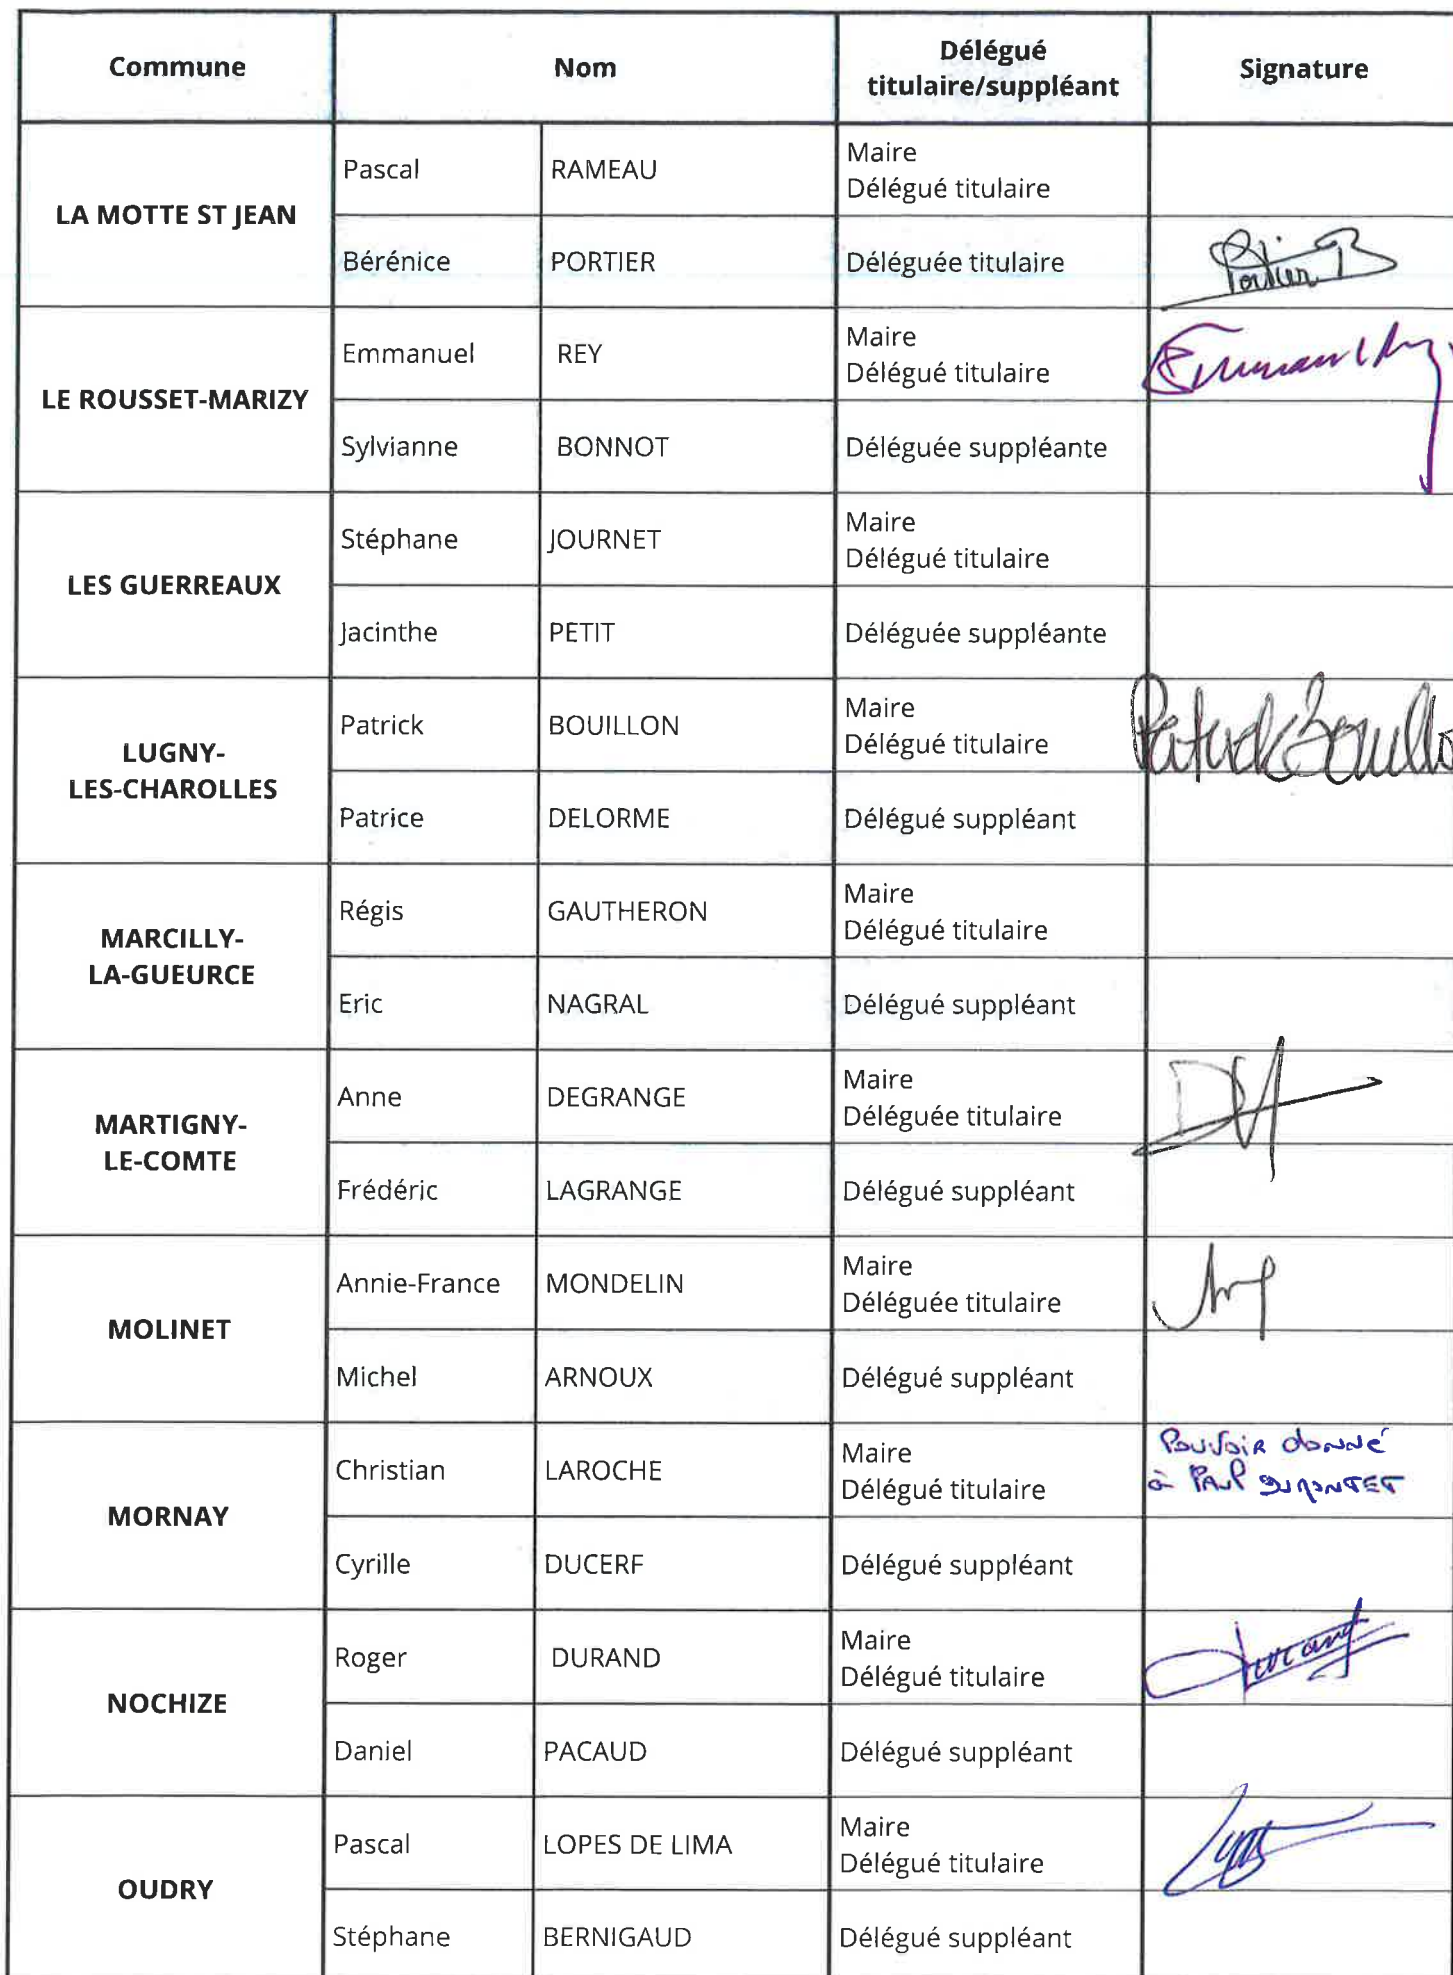 Commune
Nom
Délégué
titulaire/suppléant
Signature
LA MOTTE ST JEAN
Pascal
RAMEAU
Maire
Délégué titulaire
Bérénice
PORTIER
Déléguée titulaire
Portier B
LE ROUSSET-MARIZY
Emmanuel
REY
Maire
Délégué titulaire
Sylvianne
BONNOT
Déléguée suppléante
LES GUERREAUX
Stéphane
JOURNET
Maire
Délégué titulaire
Jacinthe
PETIT
Déléguée suppléante
LUGNY-
LES-CHAROLLES
Patrick
BOUILLON
Maire
Délégué titulaire
Patrice
DELORME
Délégué suppléant
MARCILLY-
LA-GUEURCE
Régis
GAUTHERON
Maire
Délégué titulaire
Eric
NAGRAL
Délégué suppléant
MARTIGNY-
LE-COMTE
Anne
DEGRANGE
Maire
Déléguée titulaire
Frédéric
LAGRANGE
Délégué suppléant
MOLINET
Annie-France
MONDELIN
Maire
Déléguée titulaire
Michel
ARNOUX
Délégué suppléant
MORNAY
Christian
LAROCHE
Maire
Délégué titulaire
Pouvoir donné
à PAUL DUMONTET
Cyrille
DUCERF
Délégué suppléant
NOCHIZE
Roger
DURAND
Maire
Délégué titulaire
Daniel
PACAUD
Délégué suppléant
OUDRY
Pascal
LOPES DE LIMA
Maire
Délégué titulaire
Stéphane
BERNIGAUD
Délégué suppléant